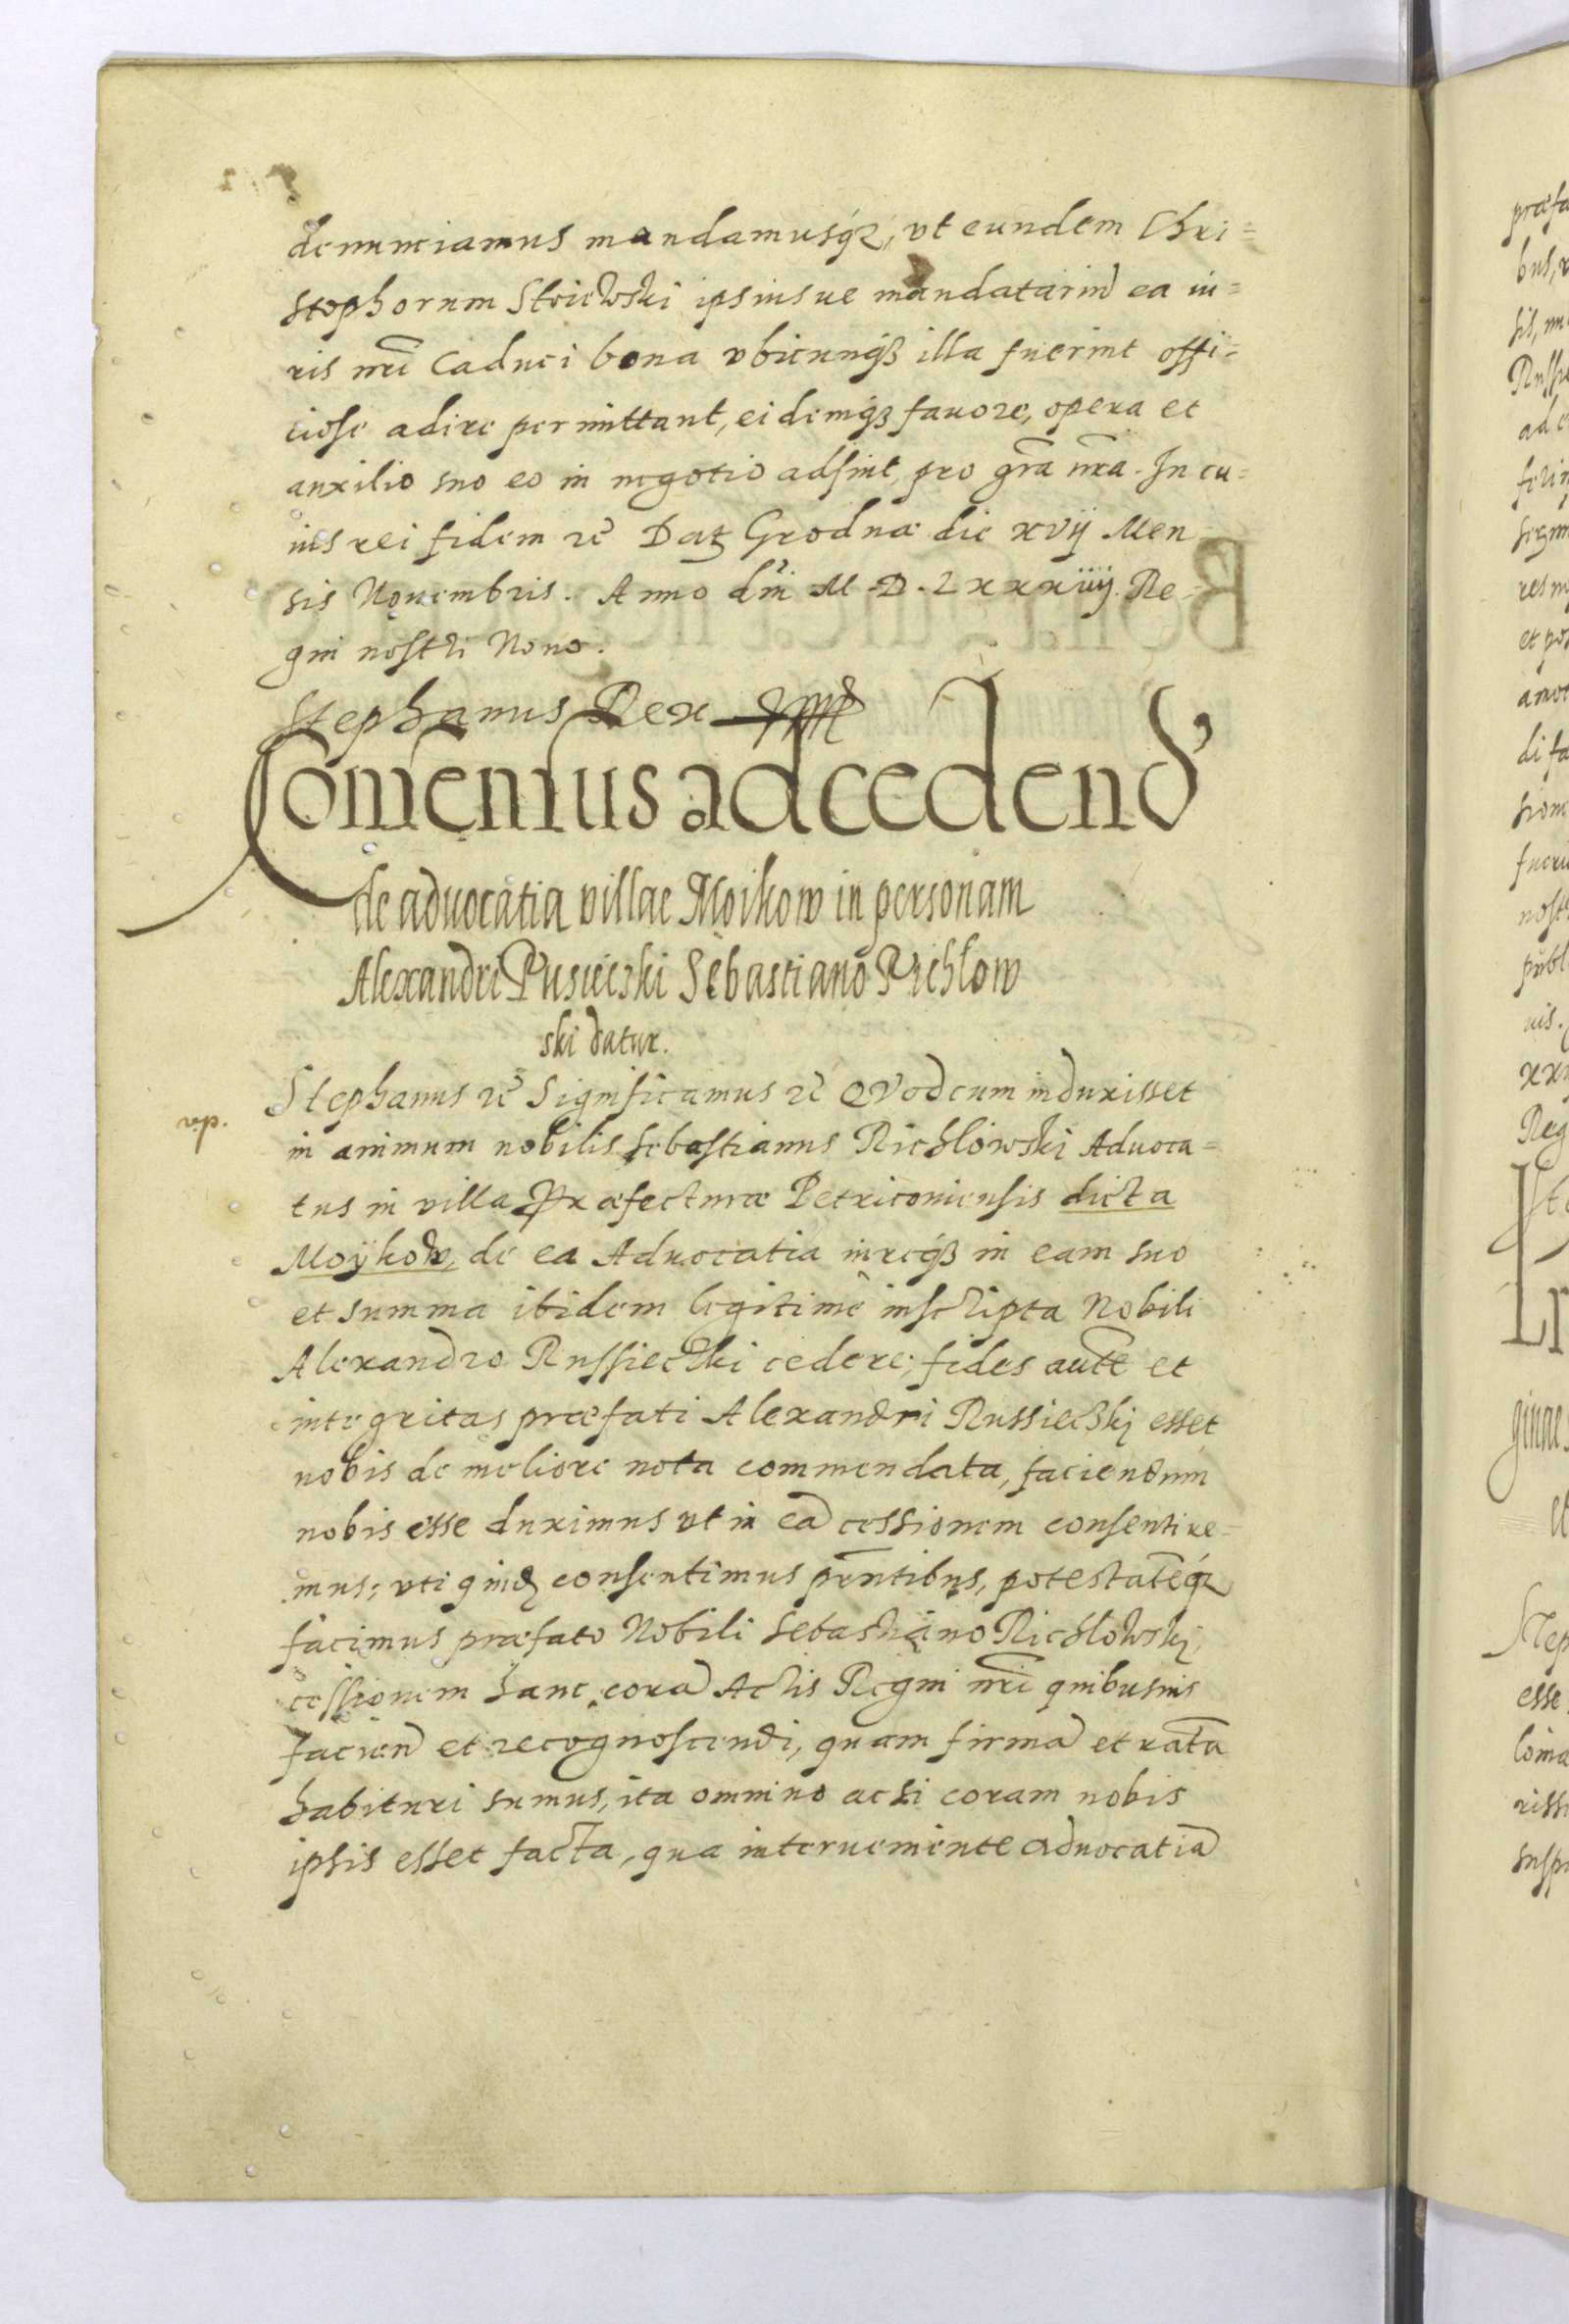 denunciamus mandamusq3, vt eundem Chri=
stophorum Striewski ipsiusue mandatariũ ea iu=
ris nr̃i Caduci bona vbicunq3 illa fuerint offi=
ciose adire permittant, eidemq3 fauore, opera et
auxilio suo eo in negotio adsint, pro gr̃a nr̃a. In cu=
ius rei fidem &c̃ Datȝ Grodnæ die xvij Men
sis Nouembris. Anno dñi M.D.Lxxxiiij. Re-
gni nostri Nono.
Stephanus Rex
Consensus ad cedend
de aduocatia villae Moikow in personam
Alexandri Rusieczki Sebastiano Richlow
ski datur.
Stephanus &c̃ Significamus &c̃ QVod cum induxisset
in animum nobilis Sebastianus Richlowski Aduoca=
tus in villa Præfecturæ Petricouiensis dicta
Moÿkow, de ea Aduocatia iureq3 in eam suo
et summa ibidem legitimè inscripta Nobili
Alexandro Russieczki cedere, fides autẽ et
integritas præfati Alexandri Russieczkj esset
nobis de meliore nota commendata, faciendum
nobis esse duximus vt in eã cessionem consentire=
mus; vti quidẽ consentimus pr̃ntibus, potestatẽq3
facimus præfato Nobili Sebastiano Richlowskj
cessionem hanc corã Actis Regni nr̃i quibusuis
faciend et recognoscendi, quam firmã et ratã
habituri sumus, ita omnino ac si coram nobis
ipsis esset facta, qua interueniente aduocatiã